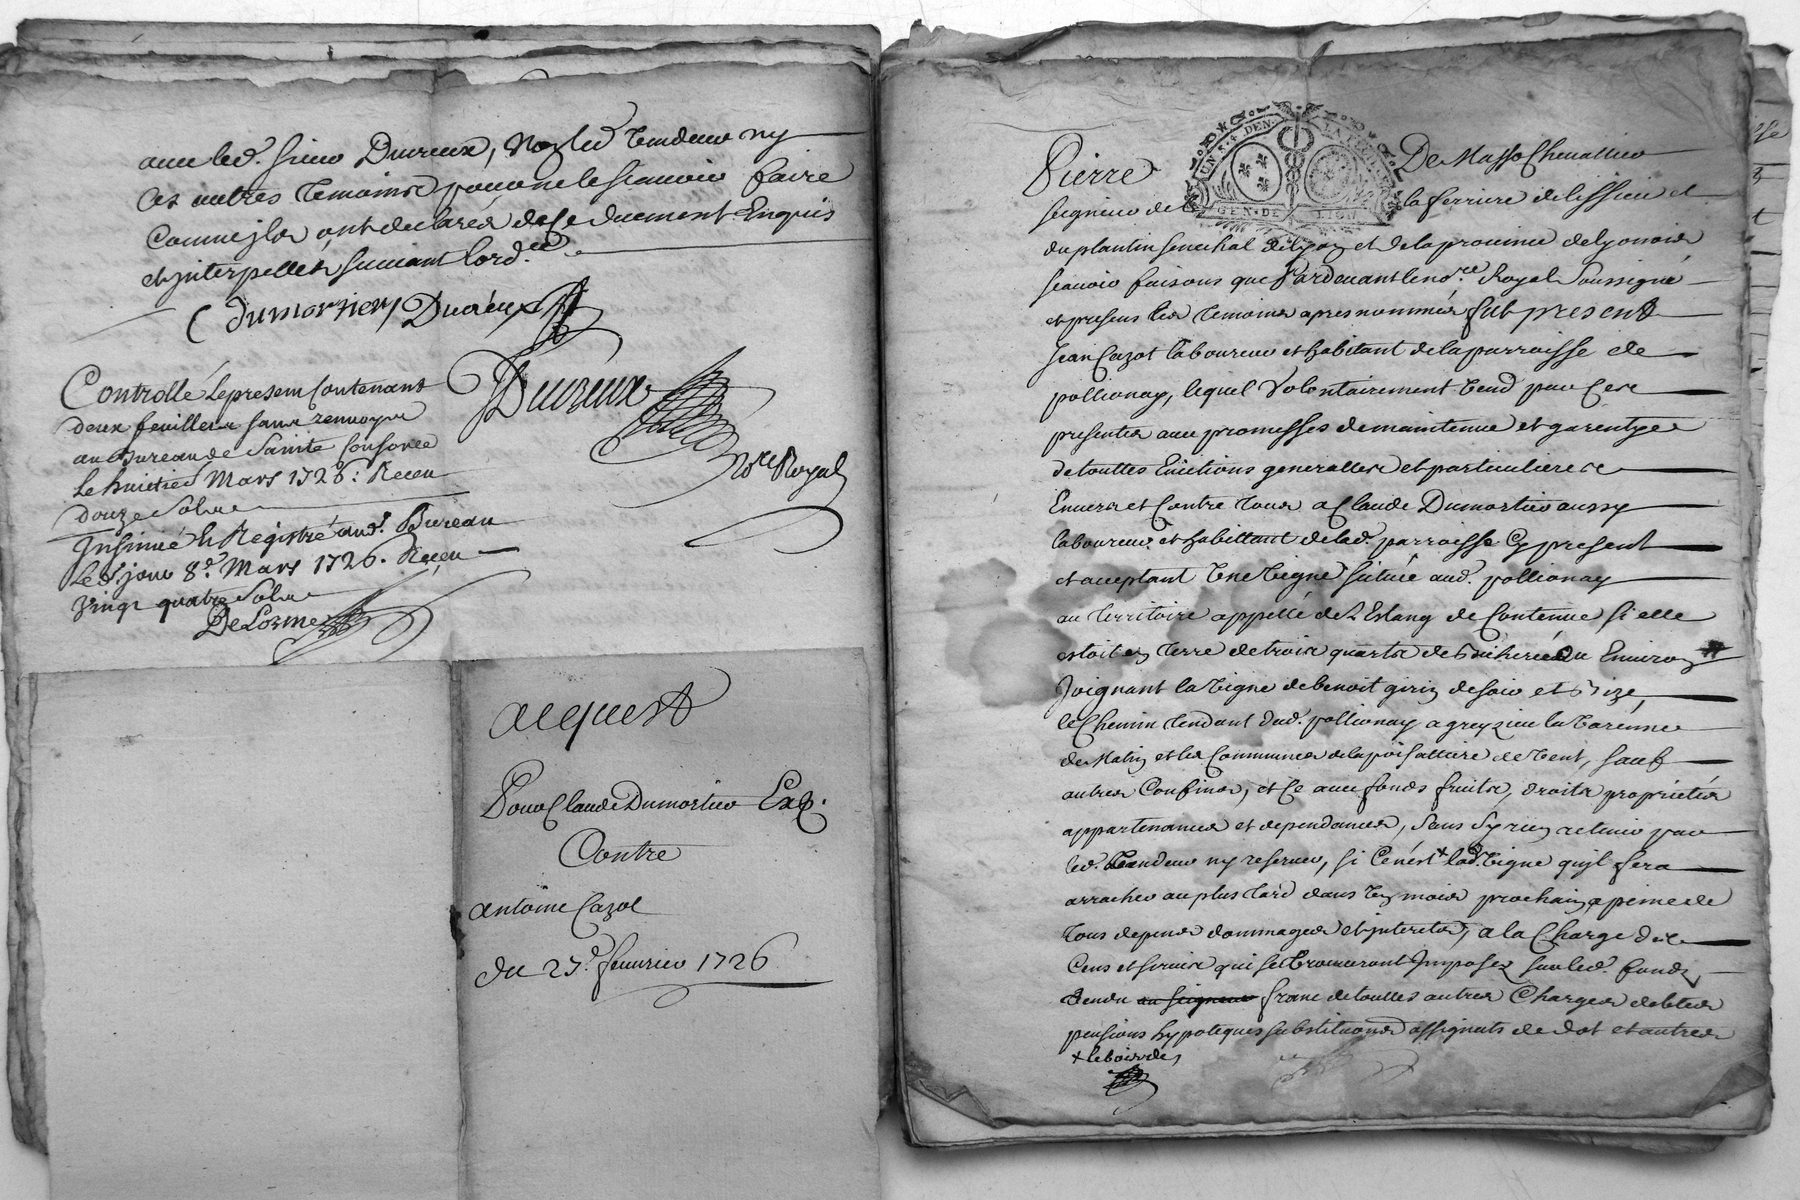 avec led. sieur Ducreux, Non led. vendeur ny
les autres temoins pour ne le scavoir faire
comme jls ont declarés de ce duement Enquis
et jnterpellés suivant lord.ce
Dumortier Ducreux
Ducreux
No.re Royal
Controllé le present contenant
deux feuillets sans renvoys
au Bureau de Sainte Consorce
le huitieme Mars 1726: Receu
douze sols
Insinué et Registré aud. Bureau
led. jour 8.e Mars 1726. Receu
vingt quatre sols
DeLorme
acquest
Pour Claude Dumortier
Contre
antoine Cazot
du 27.e fevrier 1726
UN S. 4 DEN. LA FEUILLE
GEN. DE LION
Pierre De Masso Chevallier
seigneur de la ferriere de lissieu et
du plantin senechal de lyon et de la province de lyonnois
scavoir faisons que Pardevant le no.re Royal Soussigné
et presens les temoins apres nommés fut present
Jean Cazot laboureur et habitant de la parroisse de
pollionay, lequel volontairement vend par ces
presentes avec promesses de maintenue et garentye
de touttes Evictions generalles et particulieres
Envers et Contre tous a Claude Dumortier aussy
laboureur et habittant de lad. parroisse Cy present
et acceptant Une vigne située aud. pollionay
au territoire appellé de L'Estang de Contenue si elle
estoit en terre de trois quarts de bicherée ou Environ
Joignant la vigne de benoit girin de soir et bize,
le Chemin tendant dud. pollionay a greyzieu la varenne
de Matin et les Communes de la de vent, sauf
autres Confins, et ce avec fonds fruits, droits proprietés
appartenances et dependances, sans Sy rien retenir par
led. vendeur ny reserver, si Ce n'est + lad. vigne qu'jl fera
arracher au plus tard dans Un mois prochain a peine de
tous depens dommages et jnterets, a la Charge des
Cens et servis qui se trouveront Imposez sur led. fonds
vendu au seigneur franc de touttes autres Charges debtes
pensions hypoteques substitutions assignats de dot et autres
+ le bois de